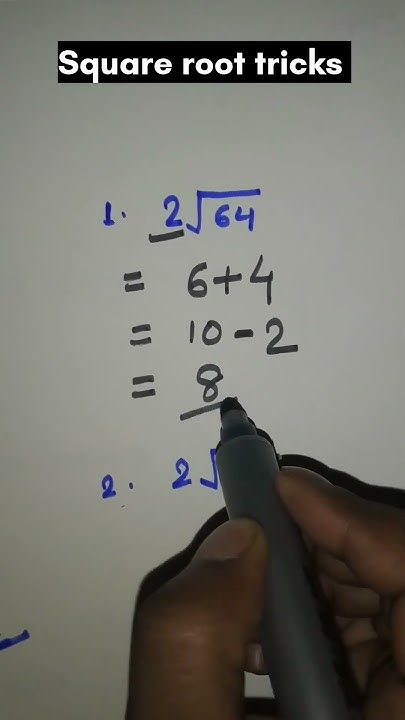 Square root tricks
1. 2√64
= 6+4
= 10-2
= 8
2. 2√